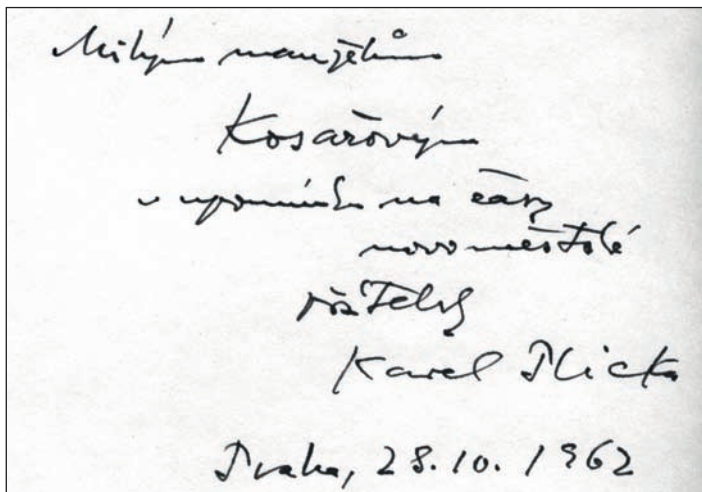 Milým manželům
Kosařovým
v upomínku na časy
novoměstské
přátelsky
Karel Plicka
Praha, 28.10.1962